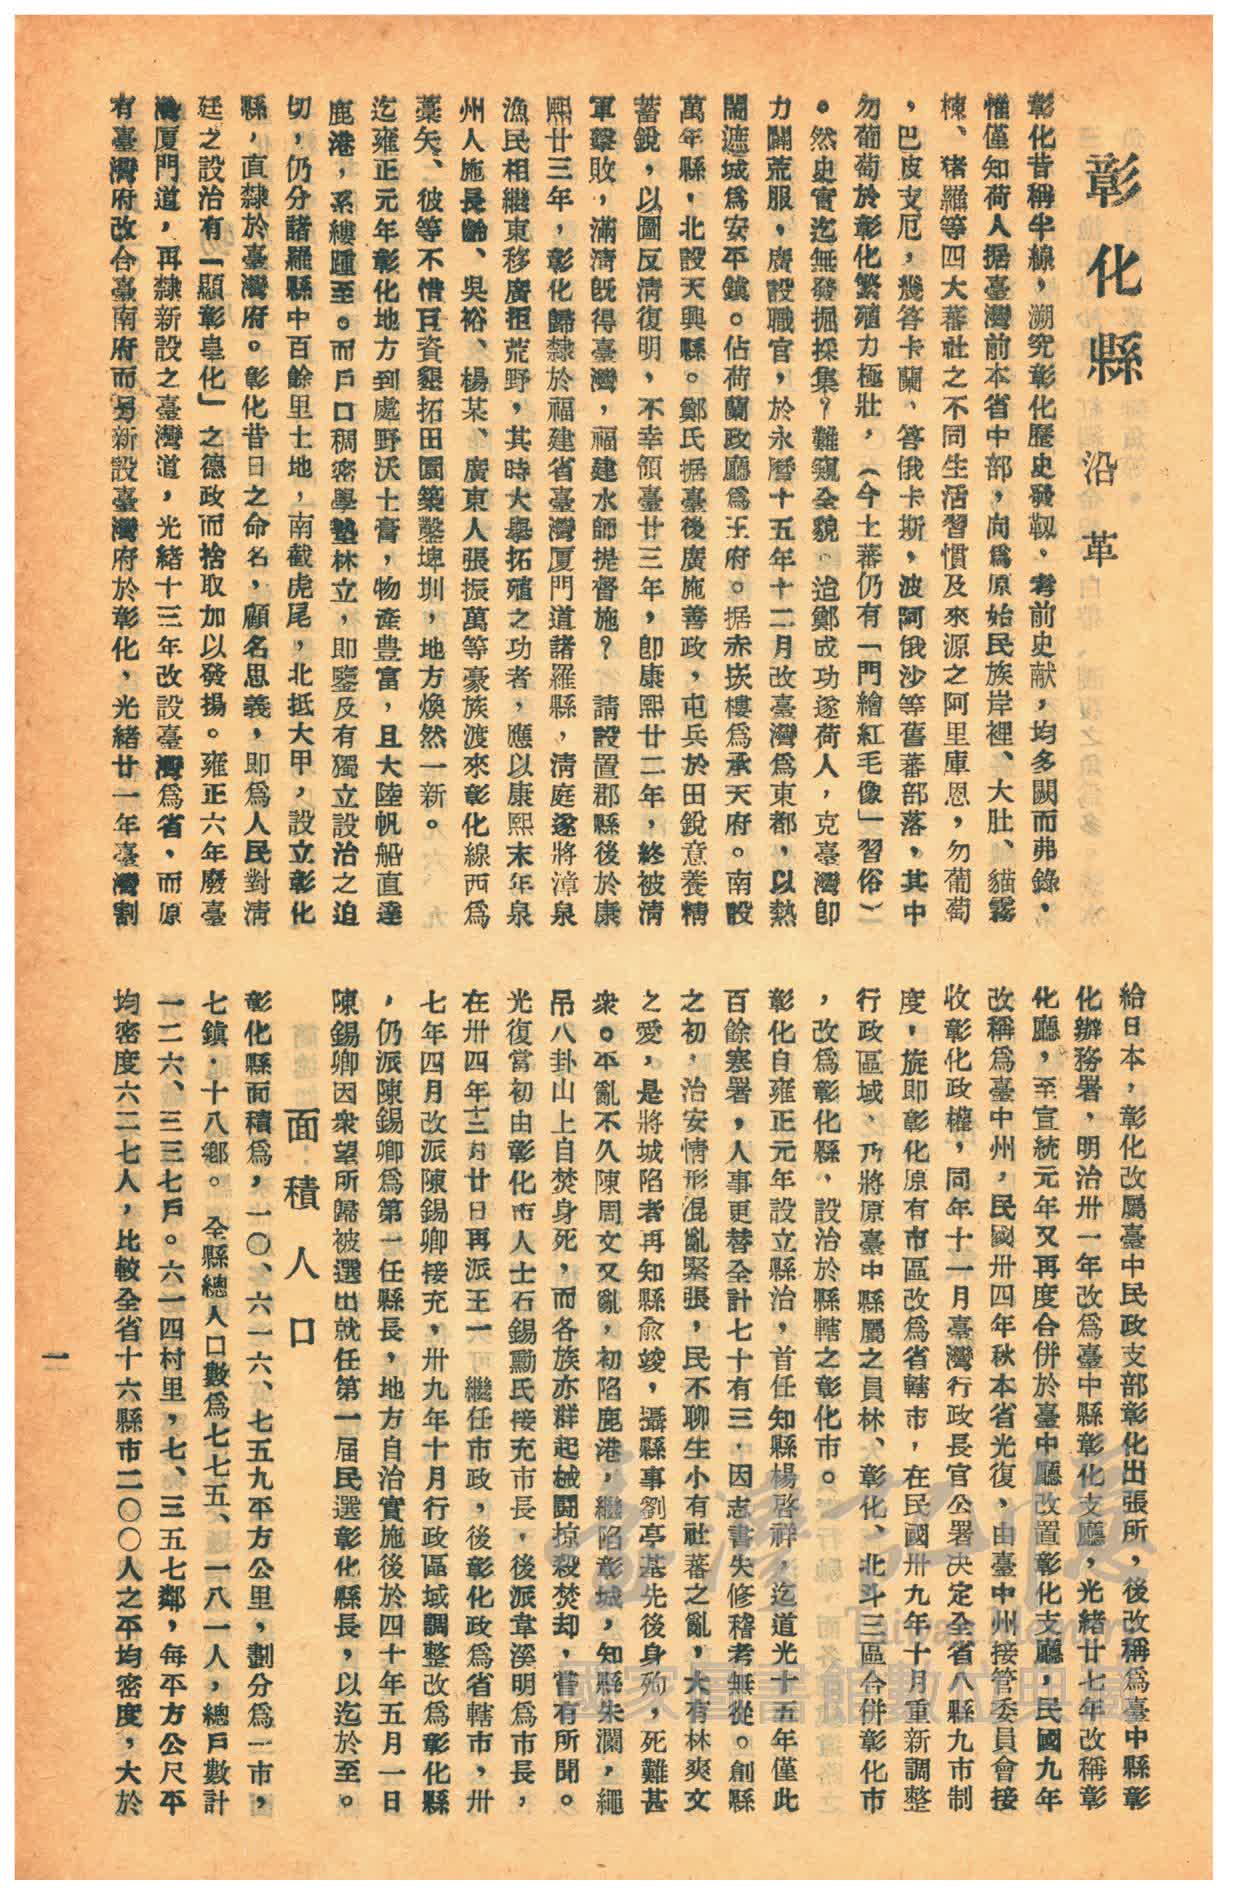 彰化縣沿革
彰化昔稱半線，溯究彰化歷史發軔、考前史献，均多闕而弗錄，
惟僅知荷人据臺灣前本省中部，向爲原始民族岸裡、大肚、貓霧
棟、猪羅等四大蕃社之不同生活習慣及來源之阿里庫恩，勿葡萄
，巴皮支厄，幾答卡蘭、答俄卡斯，波阿俄沙等舊蕃部落，其中
勿葡萄於彰化繁殖力極壯，（今土蕃仍有「門繪紅毛像」習俗）
。然史實迄無發掘採集？難窺全貌。迨鄭成功逐荷人，克臺灣卽
力闢荒服，廣設職官，於永曆十五年十二月改臺灣爲東都，以熱
闌遮城爲安平鎮。佔荷蘭政廳爲王府。据赤崁樓爲承天府。南設
萬年縣，北設天興縣。鄭氏据臺後廣施善政，屯兵於田銳意養精
蓄銳，以圖反淸復明，不幸領臺廿三年，卽康熙廿二年，終被淸
軍擊敗，滿淸旣得臺灣，福建水師提督施？　請設置郡縣後於康
熙廿三年，彰化歸隸於福建省臺灣厦門道諸羅縣，淸庭遂將漳泉
漁民相繼東移廣拒荒野，其時大擧拓殖之功者，應以康熙末年泉
州人施長齡、吳裕、楊某、廣東人張振萬等豪族渡來彰化線西爲
藁矢、彼等不惜巨資墾拓田園築鑿埤圳，地方煥然一新。
迄雍正元年彰化地方到處野沃土膏，物產豊富，且大陸帆船直達
鹿港，系縷踵至。而戶口稠密學塾林立，即鑒及有獨立設治之迫
切，仍分諸羅縣中百餘里土地，南截虎尾，北抵大甲，設立彰化
縣，直隸於臺灣府。彰化昔日之命名，顧名思義，即爲人民對淸
廷之設治有「顯彰皇化」之德政而捨取加以發揚。雍正六年廢臺
灣厦門道，再隸新設之臺灣道，光緒十三年改設臺灣爲省，而原
有臺灣府改合臺南府而另新設臺灣府於彰化，光緒廿一年臺灣割
給日本，彰化改屬臺中民政支部彰化出張所，後改稱爲臺中縣彰
化辦務署，明治卅一年改爲臺中縣彰化支廳，光緒廿七年改稱彰
化廳，至宣統元年又再度合併於臺中廳改置彰化支廳，民國九年
改稱爲臺中州，民國卅四年秋本省光復，由臺中州接管委員會接
收彰化政權，同年十一月臺灣行政長官公署決定全省八縣九市制
度，旋即彰化原有市區改爲省轄市，在民國卅九年十月重新調整
行政區域，乃將原臺中縣屬之員林、彰化、北斗三區合併彰化市
，改爲彰化縣，設治於縣轄之彰化市。
彰化自雍正元年設立縣治，首任知縣楊啓祥，迄道光十五年僅此
百餘寒署，人事更替全計七十有三，因志書失修稽考無從。創縣
之初，治安情形混亂緊張，民不聊生小有社蕃之亂，大有林爽文
之愛，是將城陷者再知縣俞竣，攝縣事劉亭基先後身殉，死難甚
衆。平亂不久陳周文又亂，初陷鹿港，繼陷彰城，知縣朱瀾，繩
吊八卦山上自焚身死，而各族亦群起械鬪掠殺焚却，嘗有所聞。
光復當初由彰化市人士石錫勳氏接充市長，後派韋溪明爲市長，
在卅四年十二月廿日再派王一　繼任市政，後彰化政爲省轄市，卅
七年四月改派陳錫卿接充，卅九年十月行政區域調整改爲彰化縣
，仍派陳錫卿爲第一任縣長，地方自治實施後於四十年五月一日
陳錫卿因衆望所歸被選出就任第一届民選彰化縣長，以迄於至。
面積人口
彰化縣面積爲，一〇、六一六、七五九平方公里，劃分爲一市，
七鎮，十八鄉。　全縣總人口數爲七七五、一八一人，總戶數計
一二六、三三七戶。六一四村里，七、三五七鄰，每平方公尺平
均密度六二七人，比較全省十六縣市二〇〇人之平均密度，大於
一
臺灣記憶
Taiwan Memory
國家圖書館數位典藏